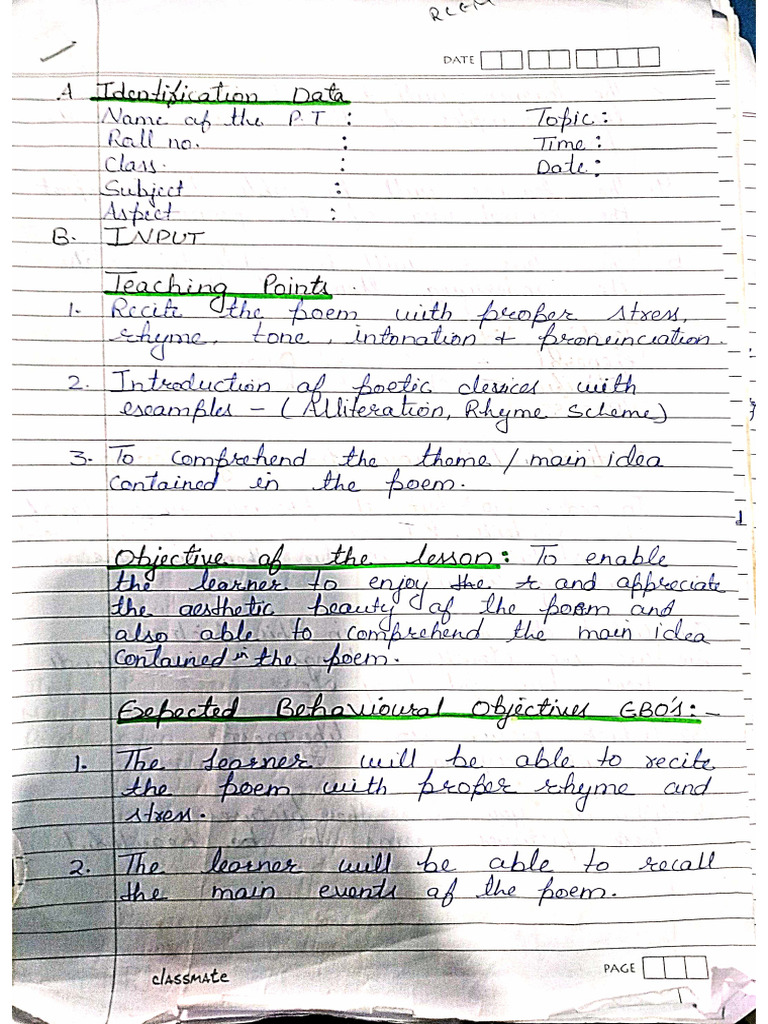 RCEM
DATE
A Identification Data
Name of the P.T : Topic :
Roll no. : Time :
Class. : Date :
Subject :
Aspect :
B. INPUT
Teaching Points.
1. Recite the poem with proper stress,
rhyme, tone, intonation & pronunciation.
2. Introduction of poetic devices with
examples - (Alliteration, Rhyme Scheme)
3. To comprehend the theme / main idea
contained in the poem.
Objective of the lesson: To enable
the learner to enjoy the r and appreciate
the aesthetic beauty of the poem and
also able to comprehend the main idea
contained in the poem.
Expected Behavioural Objectives EBO's:-
1. The learner will be able to recite
the poem with proper rhyme and
stress.
2. The learner will be able to recall
the main events of the poem.
classmate
PAGE
1.